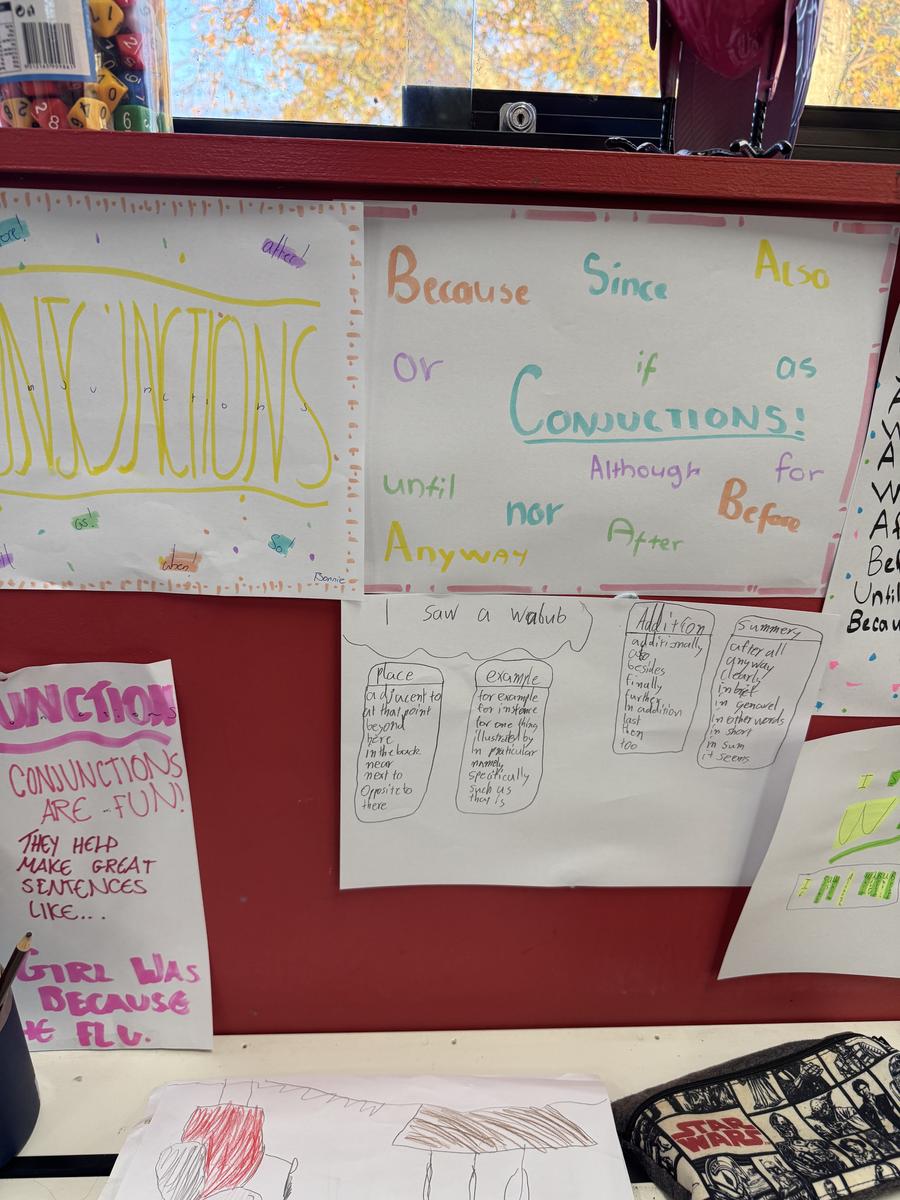 after!
ONJUNCTIONS
njunctions
as!
So!
when
Bonnie
Because Since Also
or if as
CONJUCTIONS!
until Although for
nor Before
Anyway After
I saw a walub
place
adjucent to
at that point
beyond
here
in the back
near
next to
Opposite to
there
example
for example
for instance
for one thing
illustrated by
In particular
namely
specifically
such as
that is
Addition
additionally
also
besides
finally
further
In addition
last
then
too
Summery
after all
anyway
clearly
in brief
in genarel
in other words
in short
in sum
it seems
A
W
A
W
Af
Bef
Until
Becau
UNCTIONS
CONJUNCTIONS
ARE FUN!
THEY HELP
MAKE GREAT
SENTENCES
LIKE...
GIRL WAS
BECAUSE
HE FLU.
I S
W
STAR
WARS